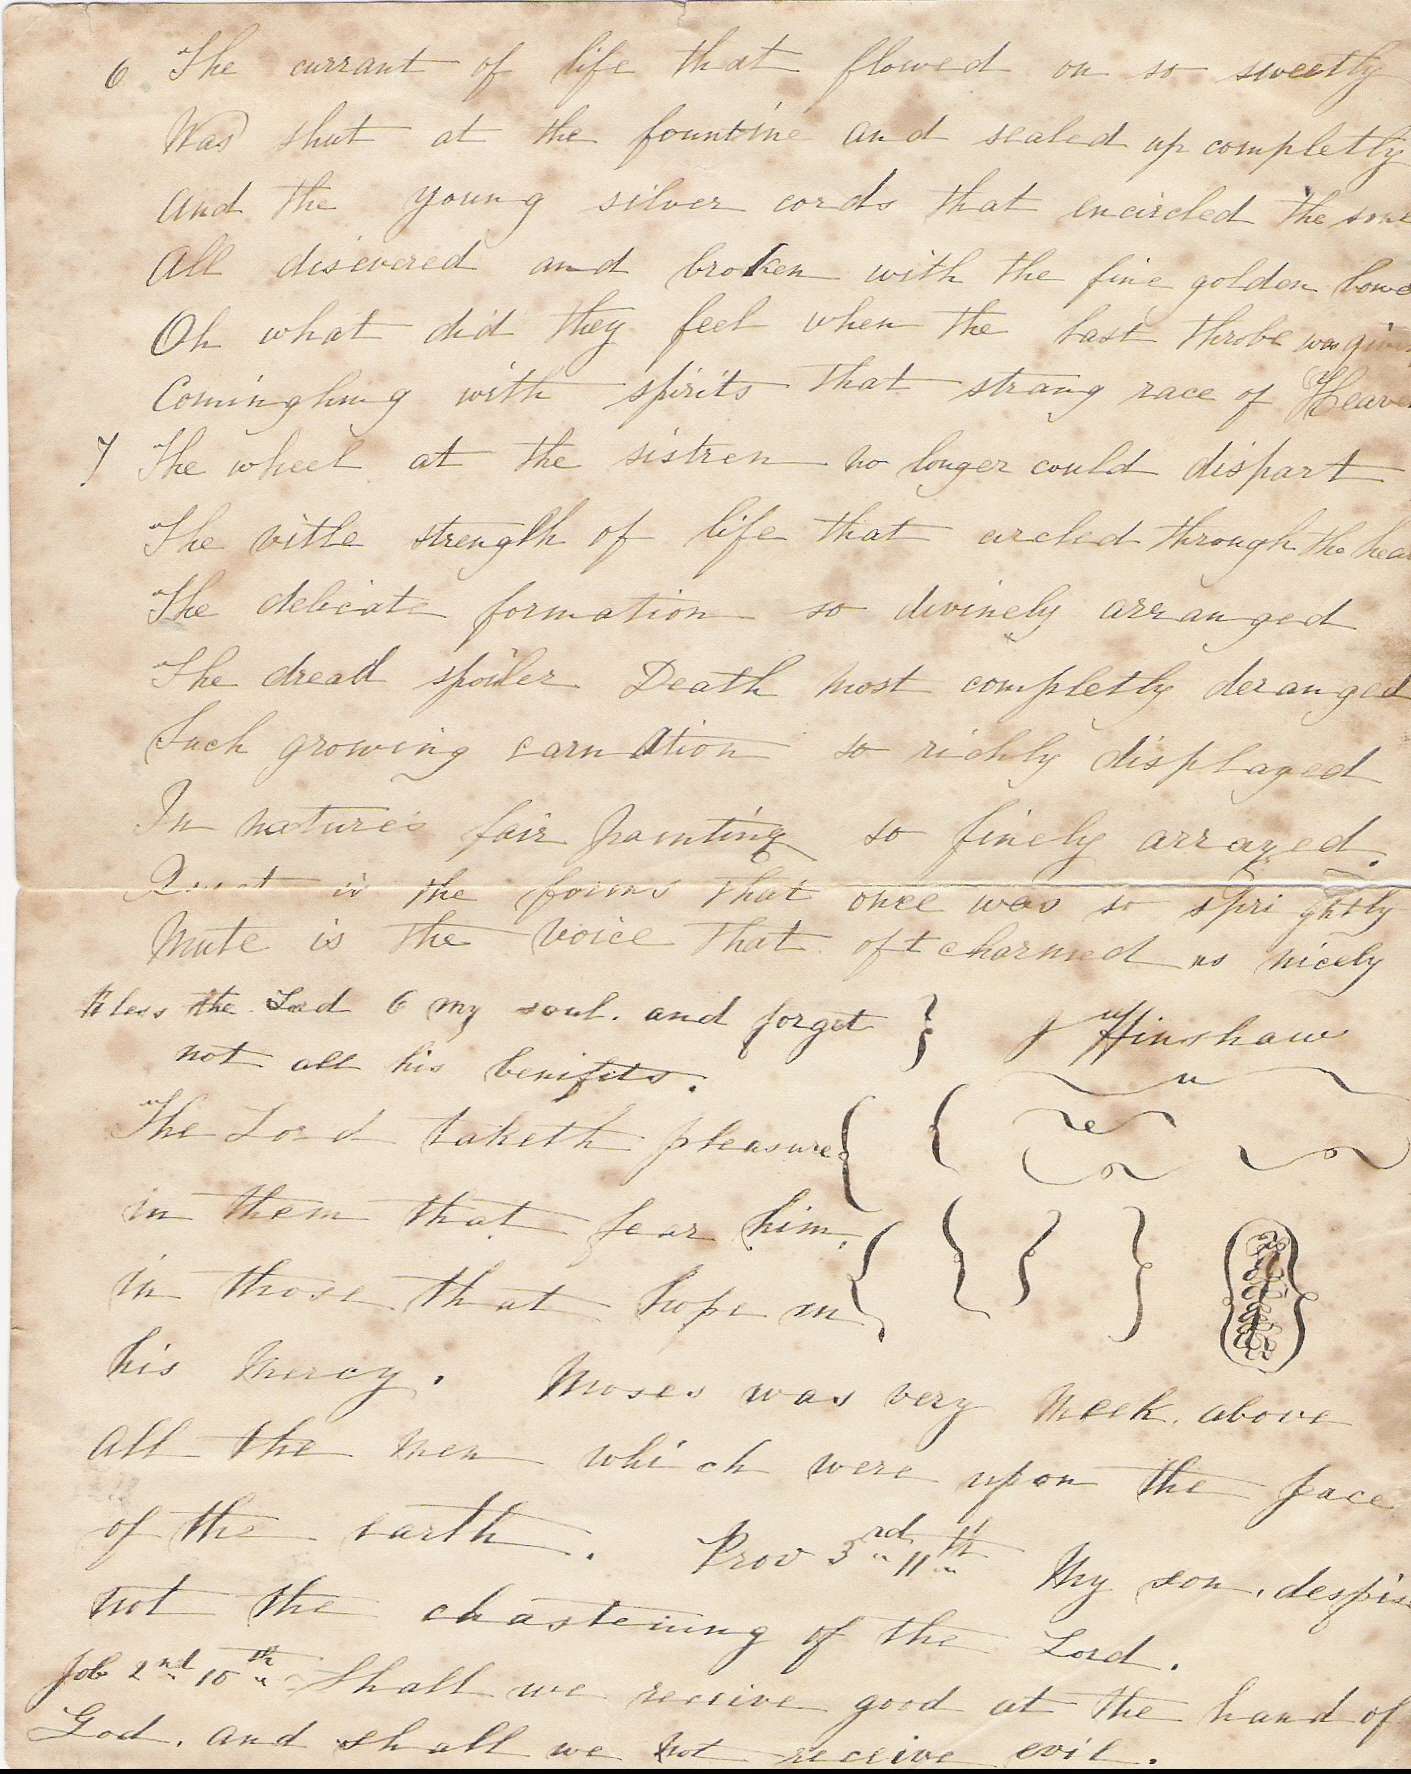 6 The currant of life that flowed on so sweetly
Was shut at the fountine and sealed up completly
And the young silver cords that encircled the
All disevered and broken with the fine golden
Oh what did they feel when the last throbe was
with spirits that strang race of
7 The wheel at the sistren no longer could dispart
The vitle strength of life that circled through the
The delicate formation so divinely arranged
The dread spoiler Death most completly deranged
Such growing carnation so richly displayed
In natures fair painting so finely arrayed.
is the forms that once was so sprightly
Mute is the voice that oft charmed us nicely
Bless the Lord O my soul. and forget
not all his benifits.
J Hinshaw
The Lord taketh pleasure
in them that fear him,
in those that hope in
his mercy. Moses was very meek. above
all the men which were upon the face
of the earth. Prov 3rd 11th My son, despise
not the chastening of the Lord.
Job 2nd 10th Shall we receive good at the hand of
God. and shall we not receive evil.